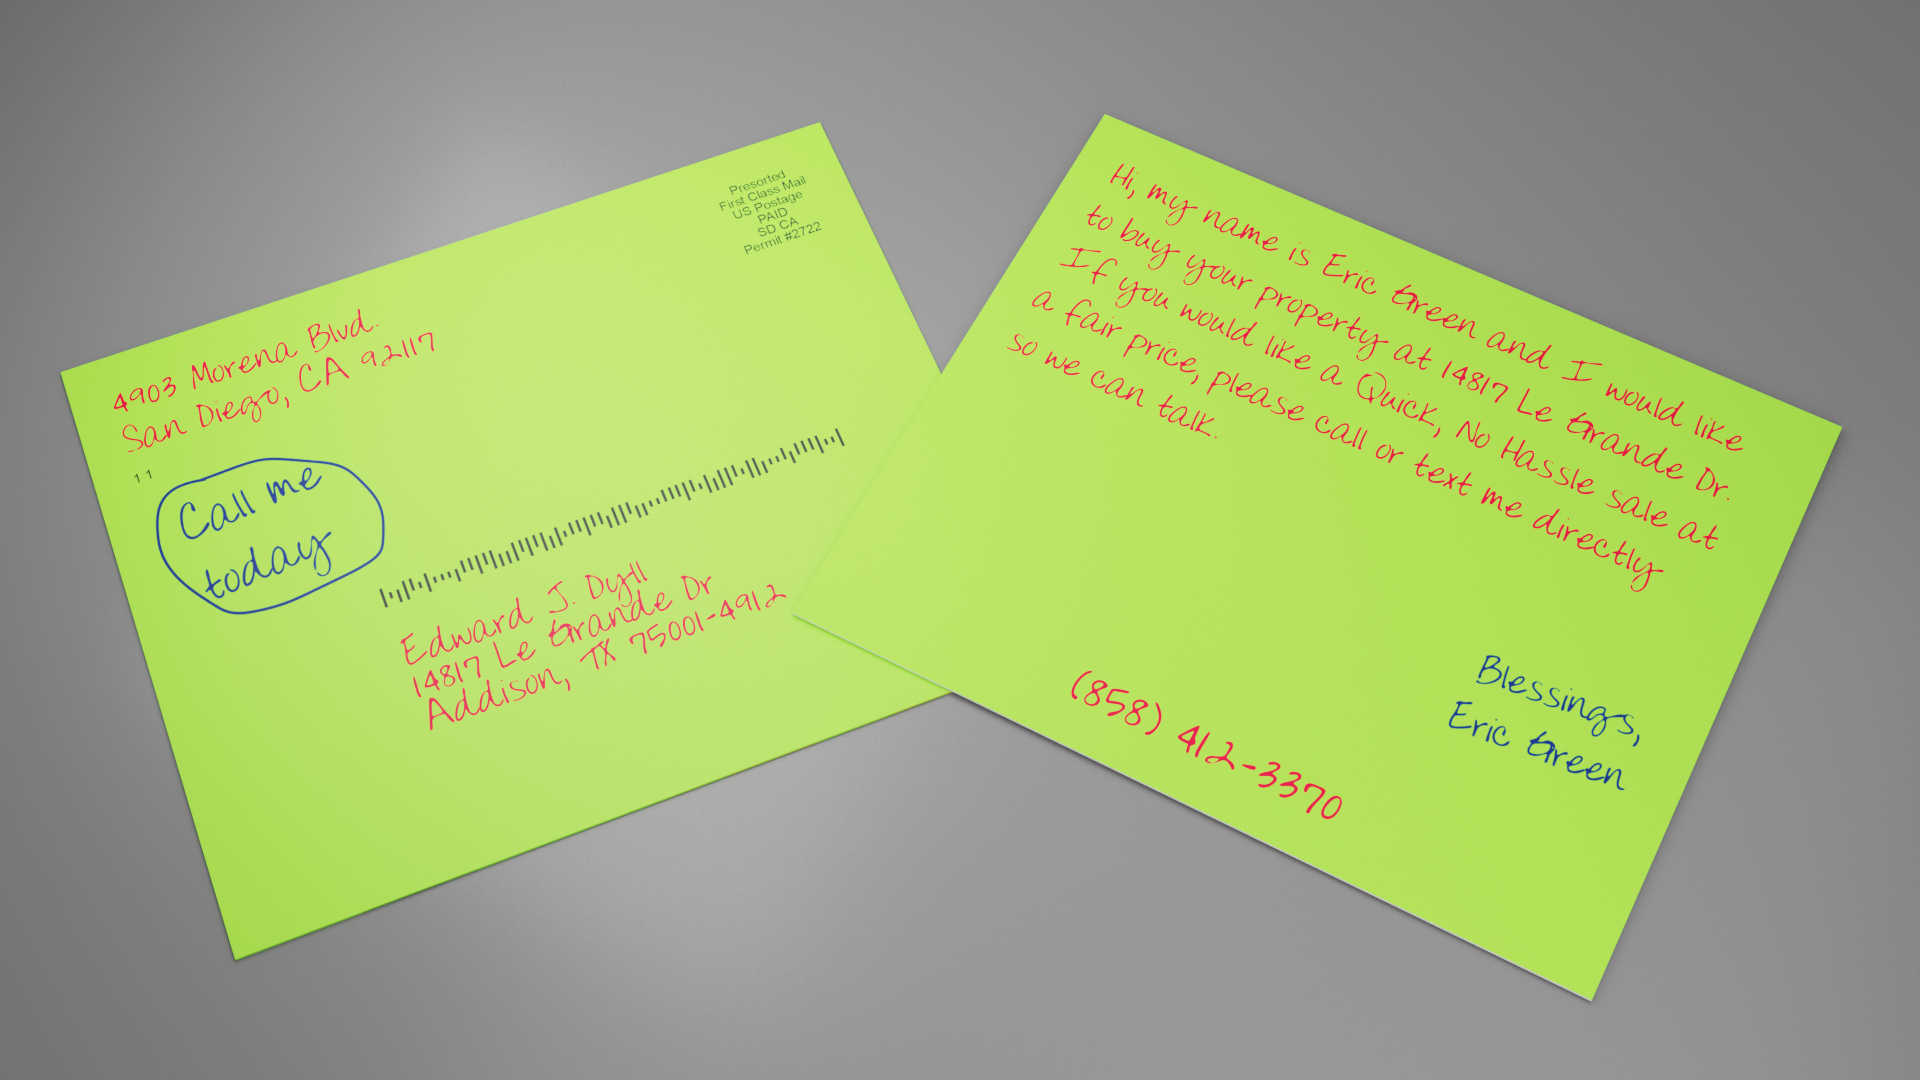 Presorted
First Class Mail
US Postage
PAID
SD CA
Permit #2722
4903 Morena Blvd.
San Diego, CA 92117
11
Call me
today
Edward J. Dyll
14817 Le Grande Dr
Addison, TX 75001-4912
Hi, my name is Eric Green and I would like
to buy your property at 14817 Le Grande Dr.
If you would like a Quick, No Hassle sale at
a fair price, please call or text me directly
so we can talk.
Blessings,
Eric Green
(858) 412-3370